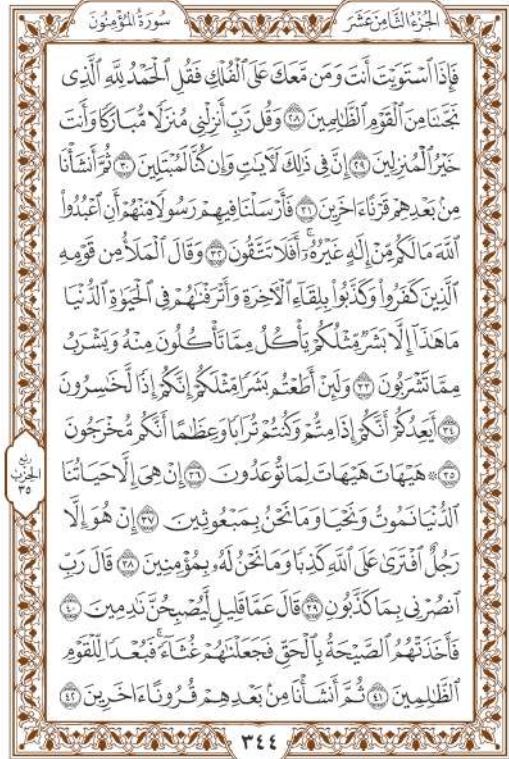 الجُزْءُ الثَّامِنَ عَشَرَ
سُورَةُ المُؤْمِنُونَ
فَإِذَا ٱسْتَوَيْتَ أَنتَ وَمَن مَّعَكَ عَلَى ٱلْفُلْكِ فَقُلِ ٱلْحَمْدُ لِلَّهِ ٱلَّذِى
نَجَّىٰنَا مِنَ ٱلْقَوْمِ ٱلظَّٰلِمِينَ ٢٨ وَقُل رَّبِّ أَنزِلْنِى مُنزَلًا مُّبَارَكًا وَأَنتَ
خَيْرُ ٱلْمُنزِلِينَ ٢٩ إِنَّ فِى ذَٰلِكَ لَءَايَٰتٍ وَإِن كُنَّا لَمُبْتَلِينَ ٣٠ ثُمَّ أَنشَأْنَا
مِنۢ بَعْدِهِمْ قَرْنًا ءَاخَرِينَ ٣١ فَأَرْسَلْنَا فِيهِمْ رَسُولًا مِّنْهُمْ أَنِ ٱعْبُدُوا۟
ٱللَّهَ مَا لَكُم مِّنْ إِلَٰهٍ غَيْرُهُۥٓ ۚ أَفَلَا تَتَّقُونَ ٣٢ وَقَالَ ٱلْمَلَأُ مِن قَوْمِهِ
ٱلَّذِينَ كَفَرُوا۟ وَكَذَّبُوا۟ بِلِقَآءِ ٱلْءَاخِرَةِ وَأَتْرَفْنَٰهُمْ فِى ٱلْحَيَوٰةِ ٱلدُّنْيَا
مَا هَٰذَآ إِلَّا بَشَرٌ مِّثْلُكُمْ يَأْكُلُ مِمَّا تَأْكُلُونَ مِنْهُ وَيَشْرَبُ
مِمَّا تَشْرَبُونَ ٣٣ وَلَئِنْ أَطَعْتُم بَشَرًا مِّثْلَكُمْ إِنَّكُمْ إِذًا لَّخَٰسِرُونَ
٣٤ أَيَعِدُكُمْ أَنَّكُمْ إِذَا مِتُّمْ وَكُنتُمْ تُرَابًا وَعِظَٰمًا أَنَّكُم مُّخْرَجُونَ
٣٥ ۞ هَيْهَاتَ هَيْهَاتَ لِمَا تُوعَدُونَ ٣٦ إِنْ هِىَ إِلَّا حَيَاتُنَا
ٱلدُّنْيَا نَمُوتُ وَنَحْيَا وَمَا نَحْنُ بِمَبْعُوثِينَ ٣٧ إِنْ هُوَ إِلَّا
رَجُلٌ ٱفْتَرَىٰ عَلَى ٱللَّهِ كَذِبًا وَمَا نَحْنُ لَهُۥ بِمُؤْمِنِينَ ٣٨ قَالَ رَبِّ
ٱنصُرْنِى بِمَا كَذَّبُونِ ٣٩ قَالَ عَمَّا قَلِيلٍ لَّيُصْبِحُنَّ نَٰدِمِينَ ٤٠
فَأَخَذَتْهُمُ ٱلصَّيْحَةُ بِٱلْحَقِّ فَجَعَلْنَٰهُمْ غُثَآءً ۚ فَبُعْدًا لِّلْقَوْمِ
ٱلظَّٰلِمِينَ ٤١ ثُمَّ أَنشَأْنَا مِنۢ بَعْدِهِمْ قُرُونًا ءَاخَرِينَ ٤٢
رُبع
الحِزْب
٣٥
٣٤٤